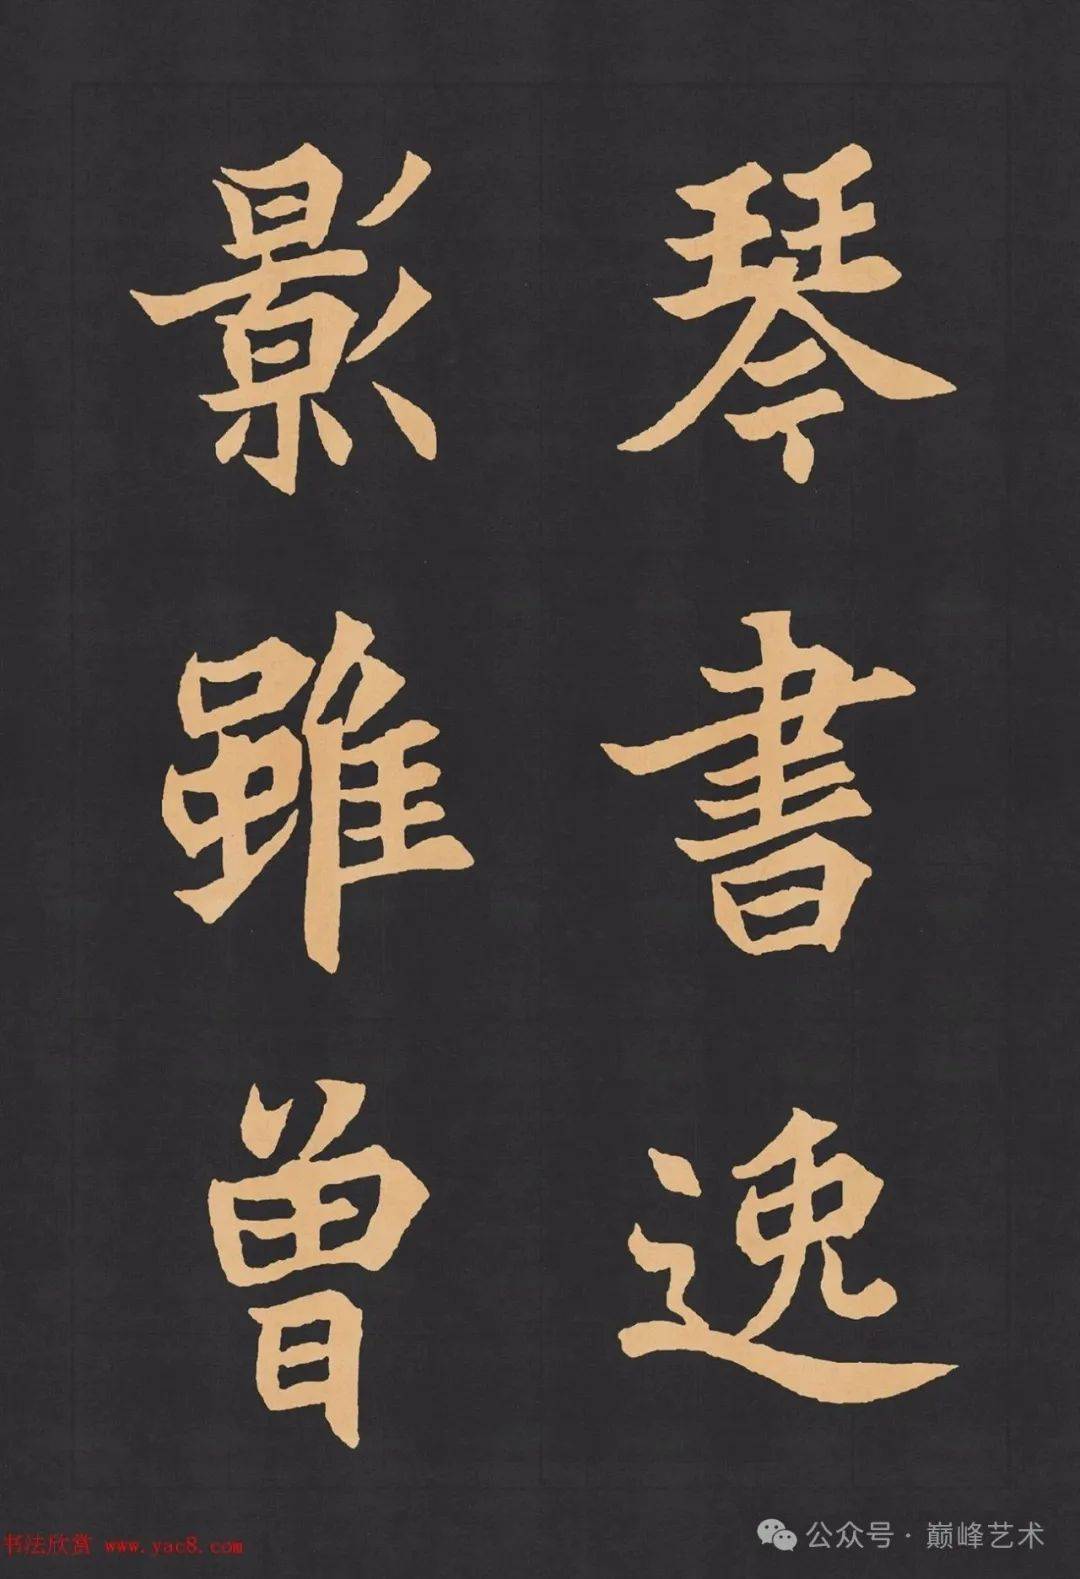 琴書逸
影雖曾
书法欣赏 www.yac8.com
公众号·巅峰艺术